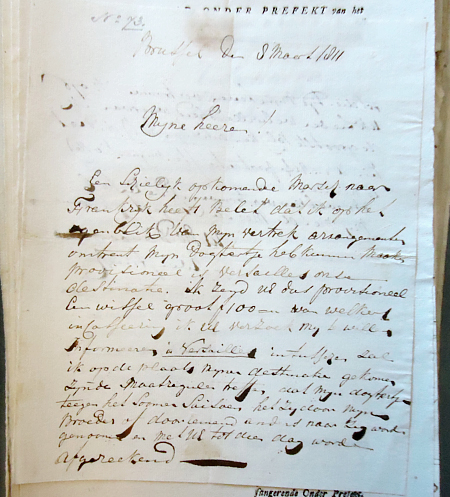 ONDER PREFEKT van het
No. 93.
Brussel den 8 Maart 1811
Myne heeren
Een Spoedig opkomende Marsch naar
Frankryk heeft belet dat ik op het
ogenblik van myn vertrek arrangementen
omtrent myn Dogtertje heb kunnen maken
provisioneel is Versailles onze
destinatie. ik zend U dus provisioneel
Een wissel groot f 100 van welkers
ik U verzoek my te willen
informeeren in Versailles intusschen zal
ik op de plaats myner destinatie gekomen
zynde Maatregulen treffen dat myn dogtertje
teegen het Saisoen het zy door myn
Broeder of door iemand anders naar my word
genomen en met UE tot dien dag worde
Afgereekend
fungerende Onder Prefekt